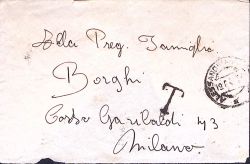 Alla Preg. Famiglia
Borghi
Corso Garibaldi 43
Milano
T